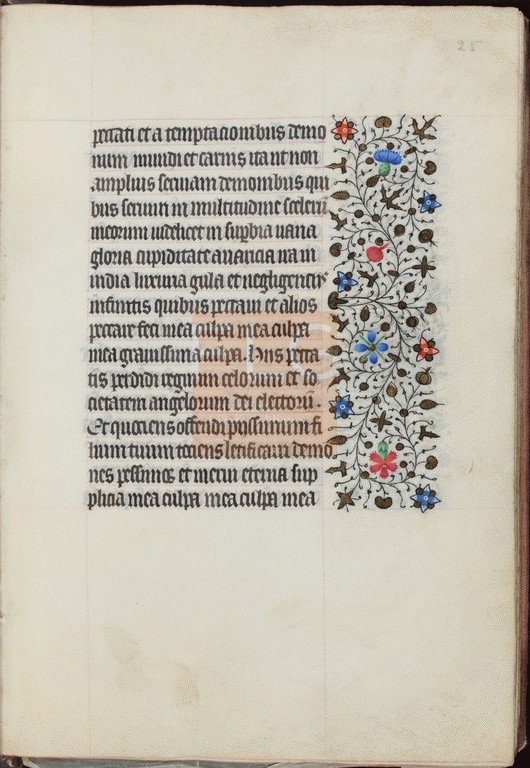 25
peccati et a temptacionibus demo
num mundi et carnis ita ut non
amplius seruiam demonibus qui
bus seruiui in multitudine sceleru
meorum videlicet in supbia vana
gloria cupiditate auaricia ira in
uidia luxuria gula et negligencijs
infinitis quibus peccaui et alios
peccare feci mea culpa mea culpa
mea grauissima culpa. Hijs pecca
tis perdidi regnum celorum et so
cietatem angelorum dei electorū.
Et quociens offendi pijssimum fi
lium tuum tociens letificaui demo
nes pessimos et merui eterna sup
plicia mea culpa mea culpa mea